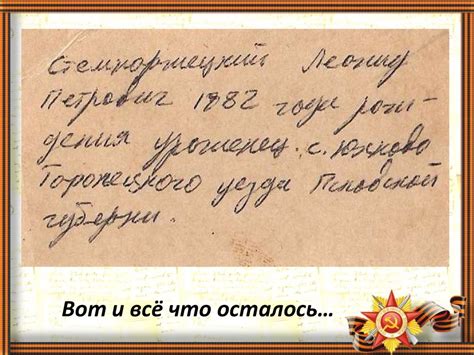 Стемпоржецкий Леонид
Петрович 1882 года рож-
дения уроженец. с. Юхново
Торожецкого уезда Псковской
губерни.
Вот и всё что осталось...